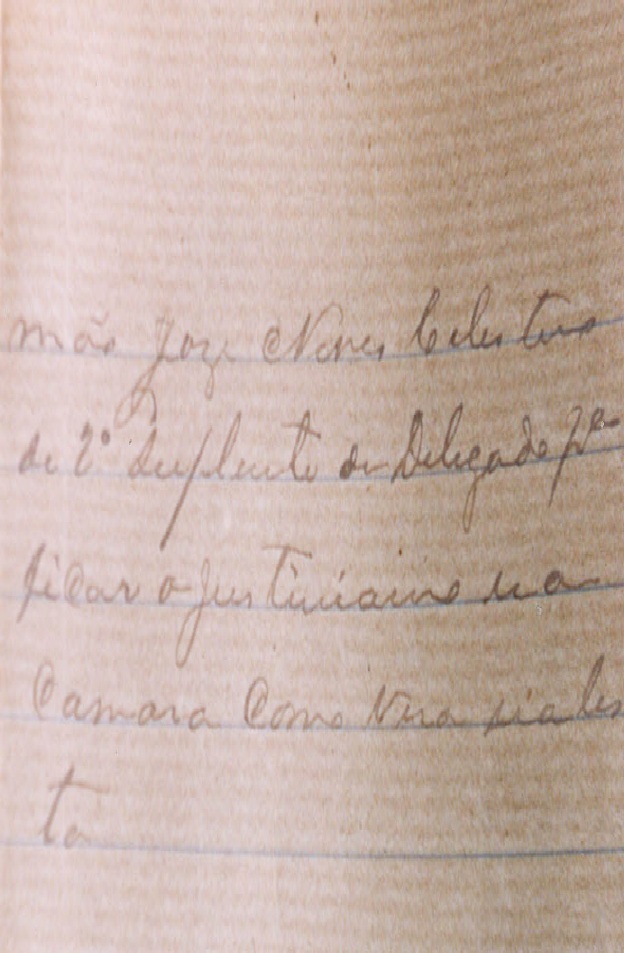 mão Joze Neves Celestino
de 2º Suplente de Delegado pª
ficar o Justiniano na
Camara Como Vera na les
ta